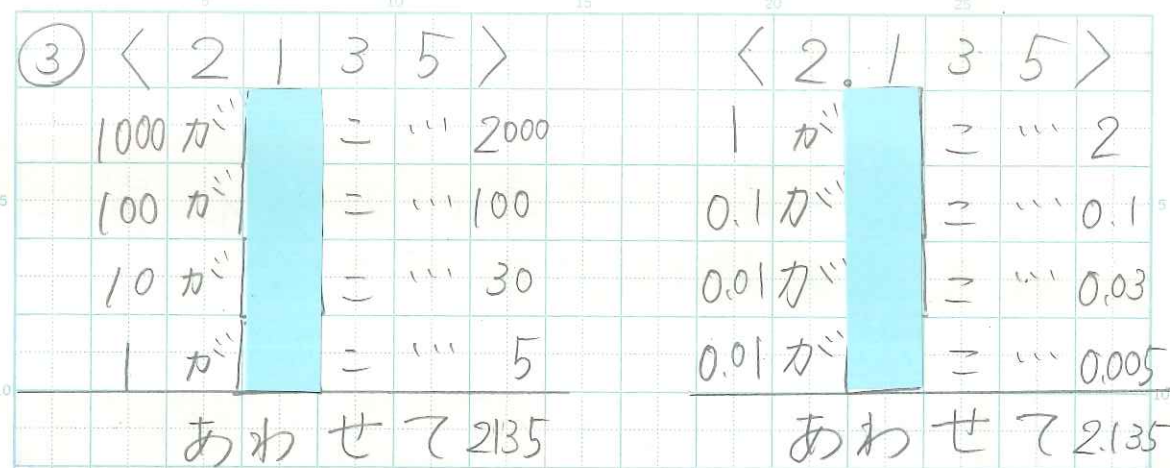 ③ 〈 2 1 3 5 〉
1000 が こ … 2000
100 が こ … 100
10 が こ … 30
1 が こ … 5
あわせて 2135
〈 2.1 3 5 〉
1 が こ … 2
0.1 が こ … 0.1
0.01 が こ … 0.03
0.01 が こ … 0.005
あわせて 2.135